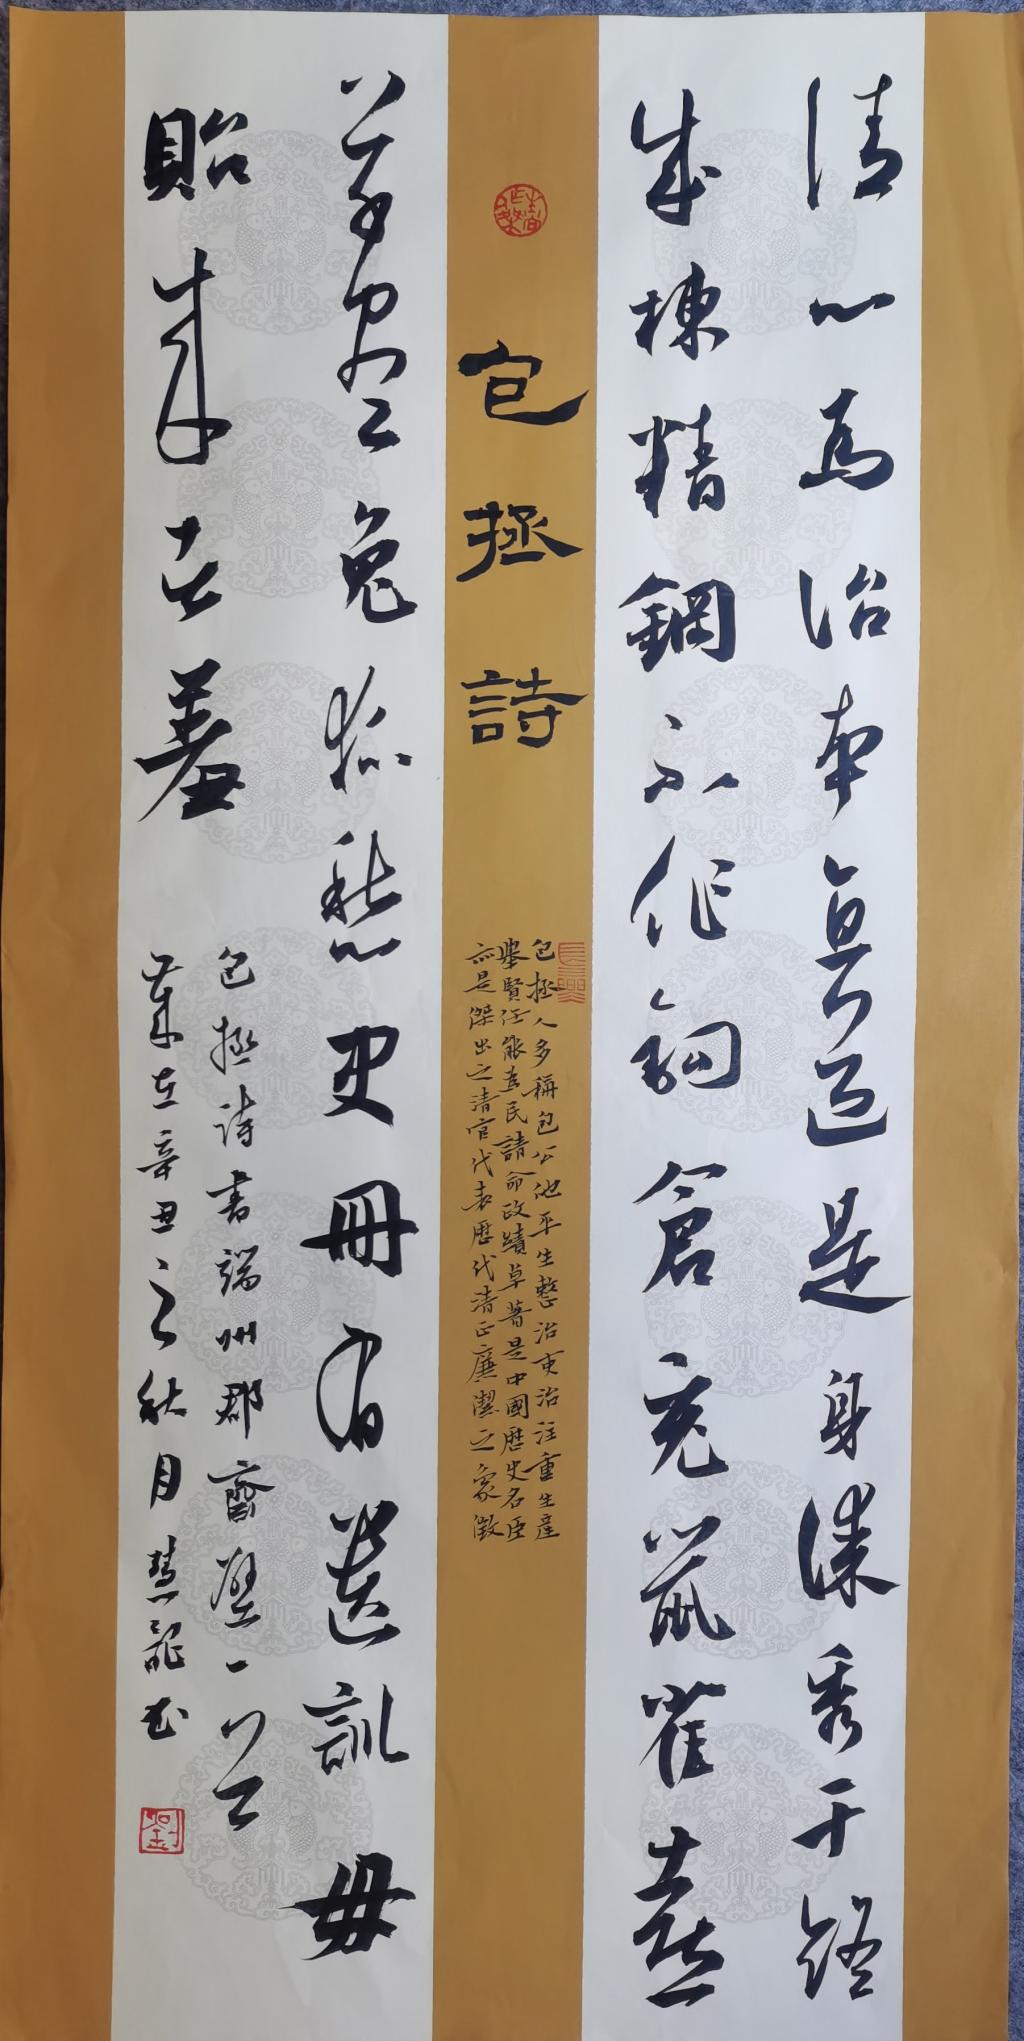 清心為治本直道是身謀秀干終
成棟精鋼不作鉤倉充鼠雀喜
包拯詩
包拯人多稱包公他平生整治吏治注重生產
舉賢任能為民請命政績卓著是中國歷史名臣
亦是傑出之清官代表歷代清正廉潔之象徵
草盡兔狐愁史冊有遺訓毋
貽來者羞
包拯詩書端州郡齋壁一首
歲在辛丑之秋月慧龍書
劉